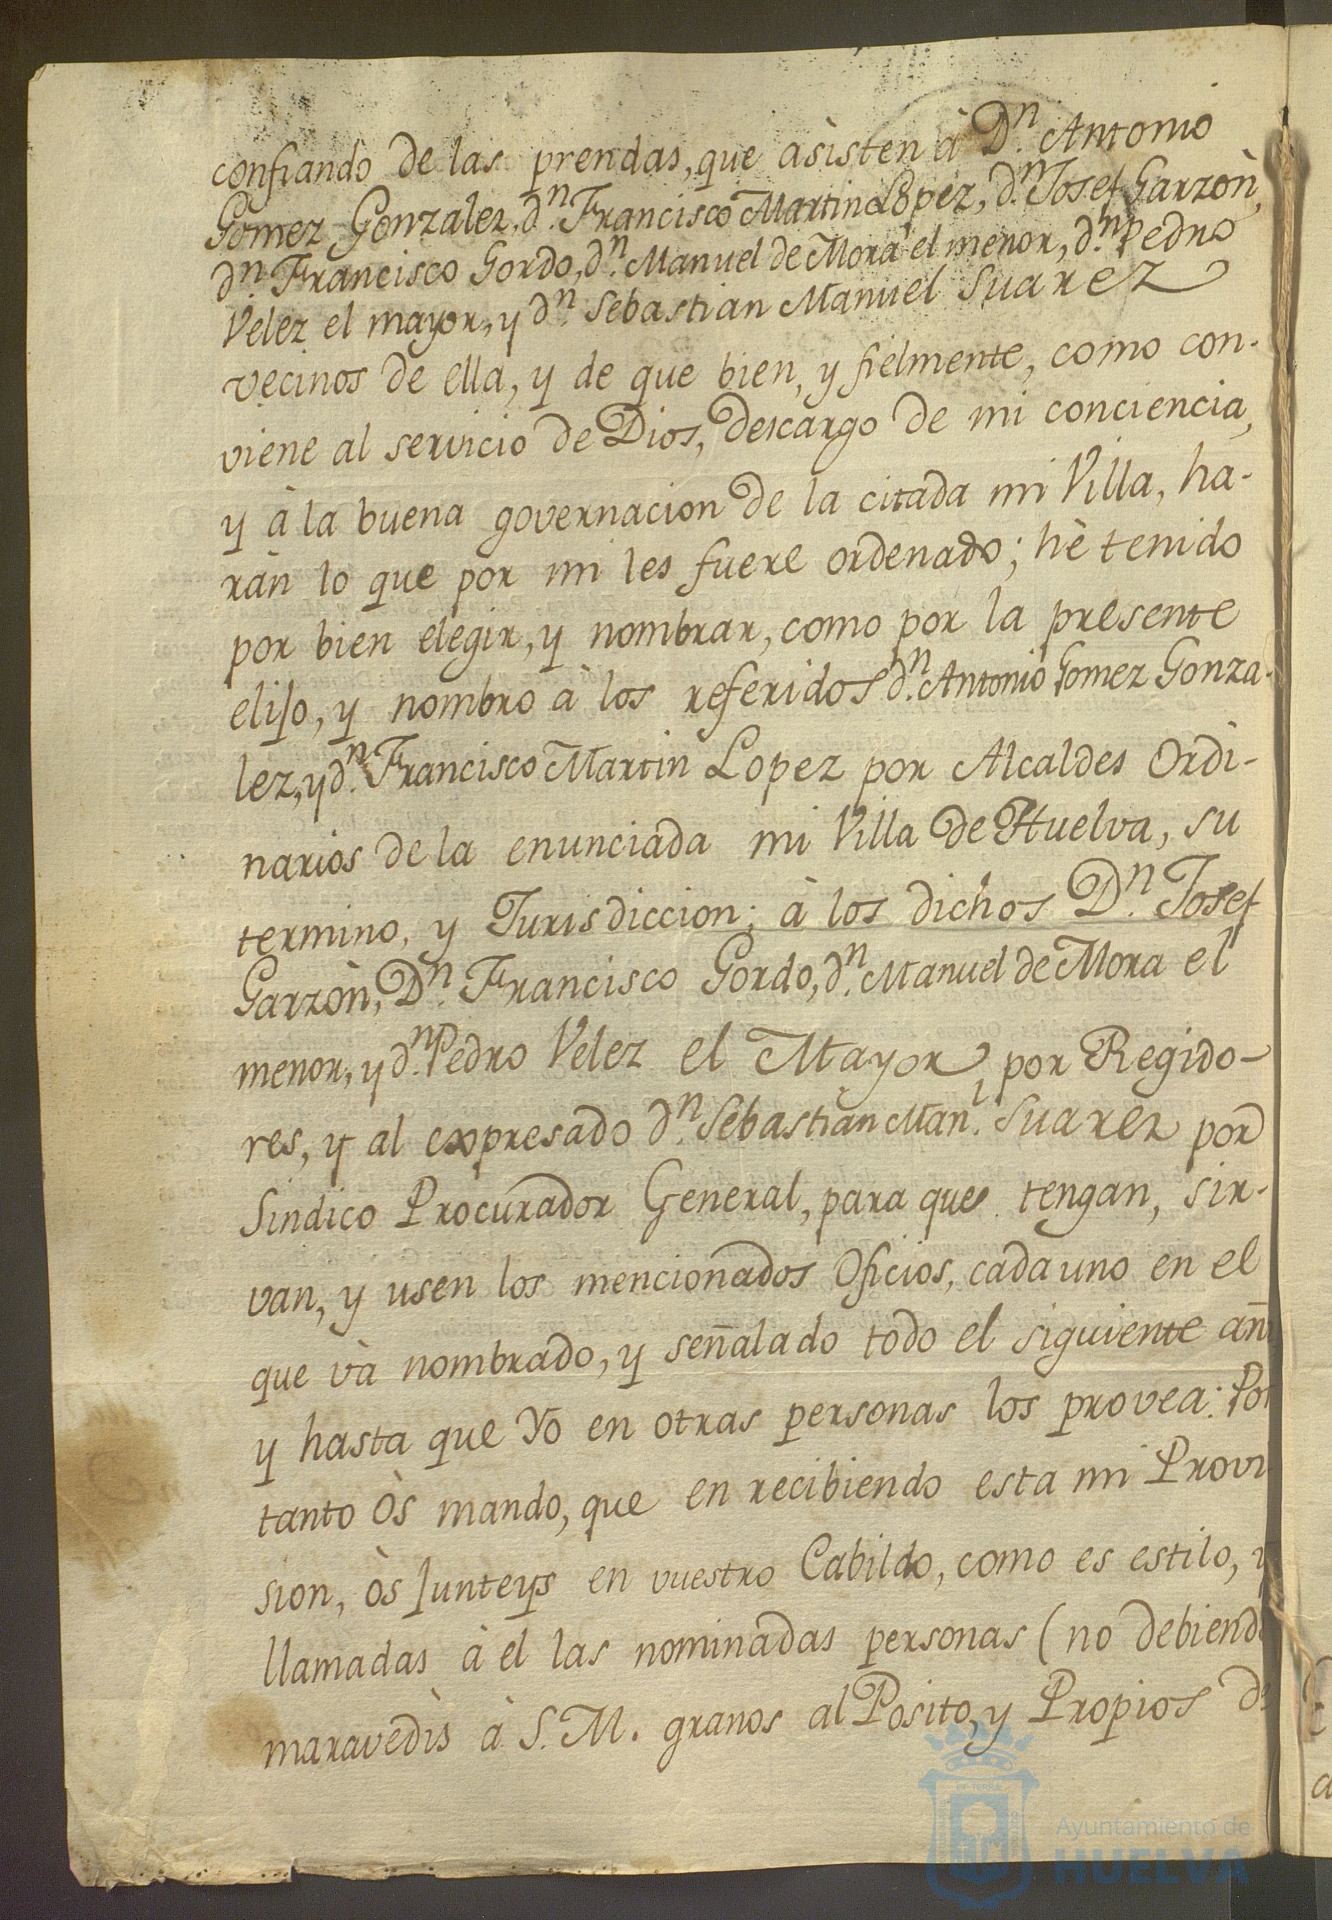 confiando de las prendas, que àsisten à Dn. Antonio
Gomez Gonzalez, dn. Francisco Martin Lopez, dn. Josef Garzòn,
dn. Francisco Gordo, dn. Manuel de Mora el menor, dn. Pedro
Velez el mayor, y dn. Sebastian Manuel Suarez
vecinos de ella, y de que bien, y fielmente, como con-
viene al servicio de Dios, descargo de mi conciencia,
y à la buena governacion de la citada mi Villa, ha-
ràn lo que por mi les fuere ordenado; hè tenido
por bien elegir, y nombrar, como por la presente
elijo, y nombro à los referidos dn. Antonio Gomez Gonza-
lez, y dn. Francisco Martin Lopez por Alcaldes Ordi-
narios de la enunciada mi Villa de Huelva, su
termino, y Jurisdiccion; à los dichos Dn. Josef
Garzòn, Dn. Francisco Gordo, dn. Manuel de Mora el
menor, y dn. Pedro Velez el Mayor, por Regido-
res, y al expresado dn. Sebastian Manl. Suarez por
Sindico Procurador General, para que tengan, sir-
van, y usen los mencionados Oficios, cada uno en el
que và nombrado, y señalado todo el siguiente añ
y hasta que Yo en otras personas los provea: Por
tanto òs mando, que en recibiendo esta mi Provi
sion, òs Junteys en vuestro Cabildo, como es estilo, y
llamadas à el las nominadas personas (no debiend
maravedìs à S. M. granos al Posito, y Propios d
Ayuntamiento de
HUELVA